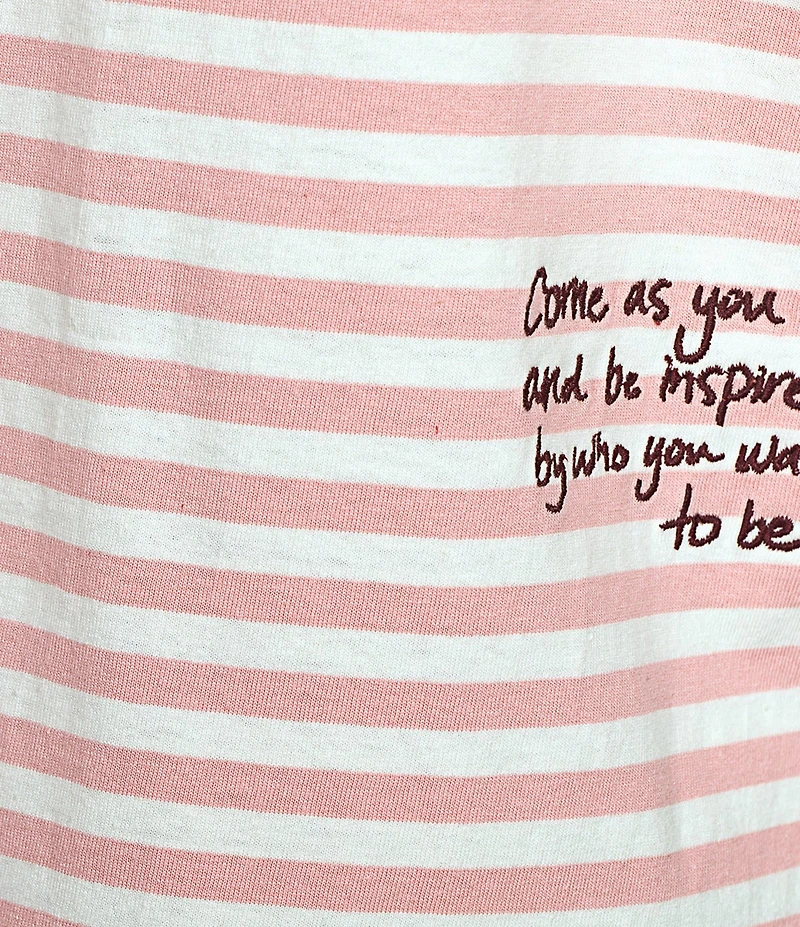 Come as you
and be inspire
by who you wa
to be